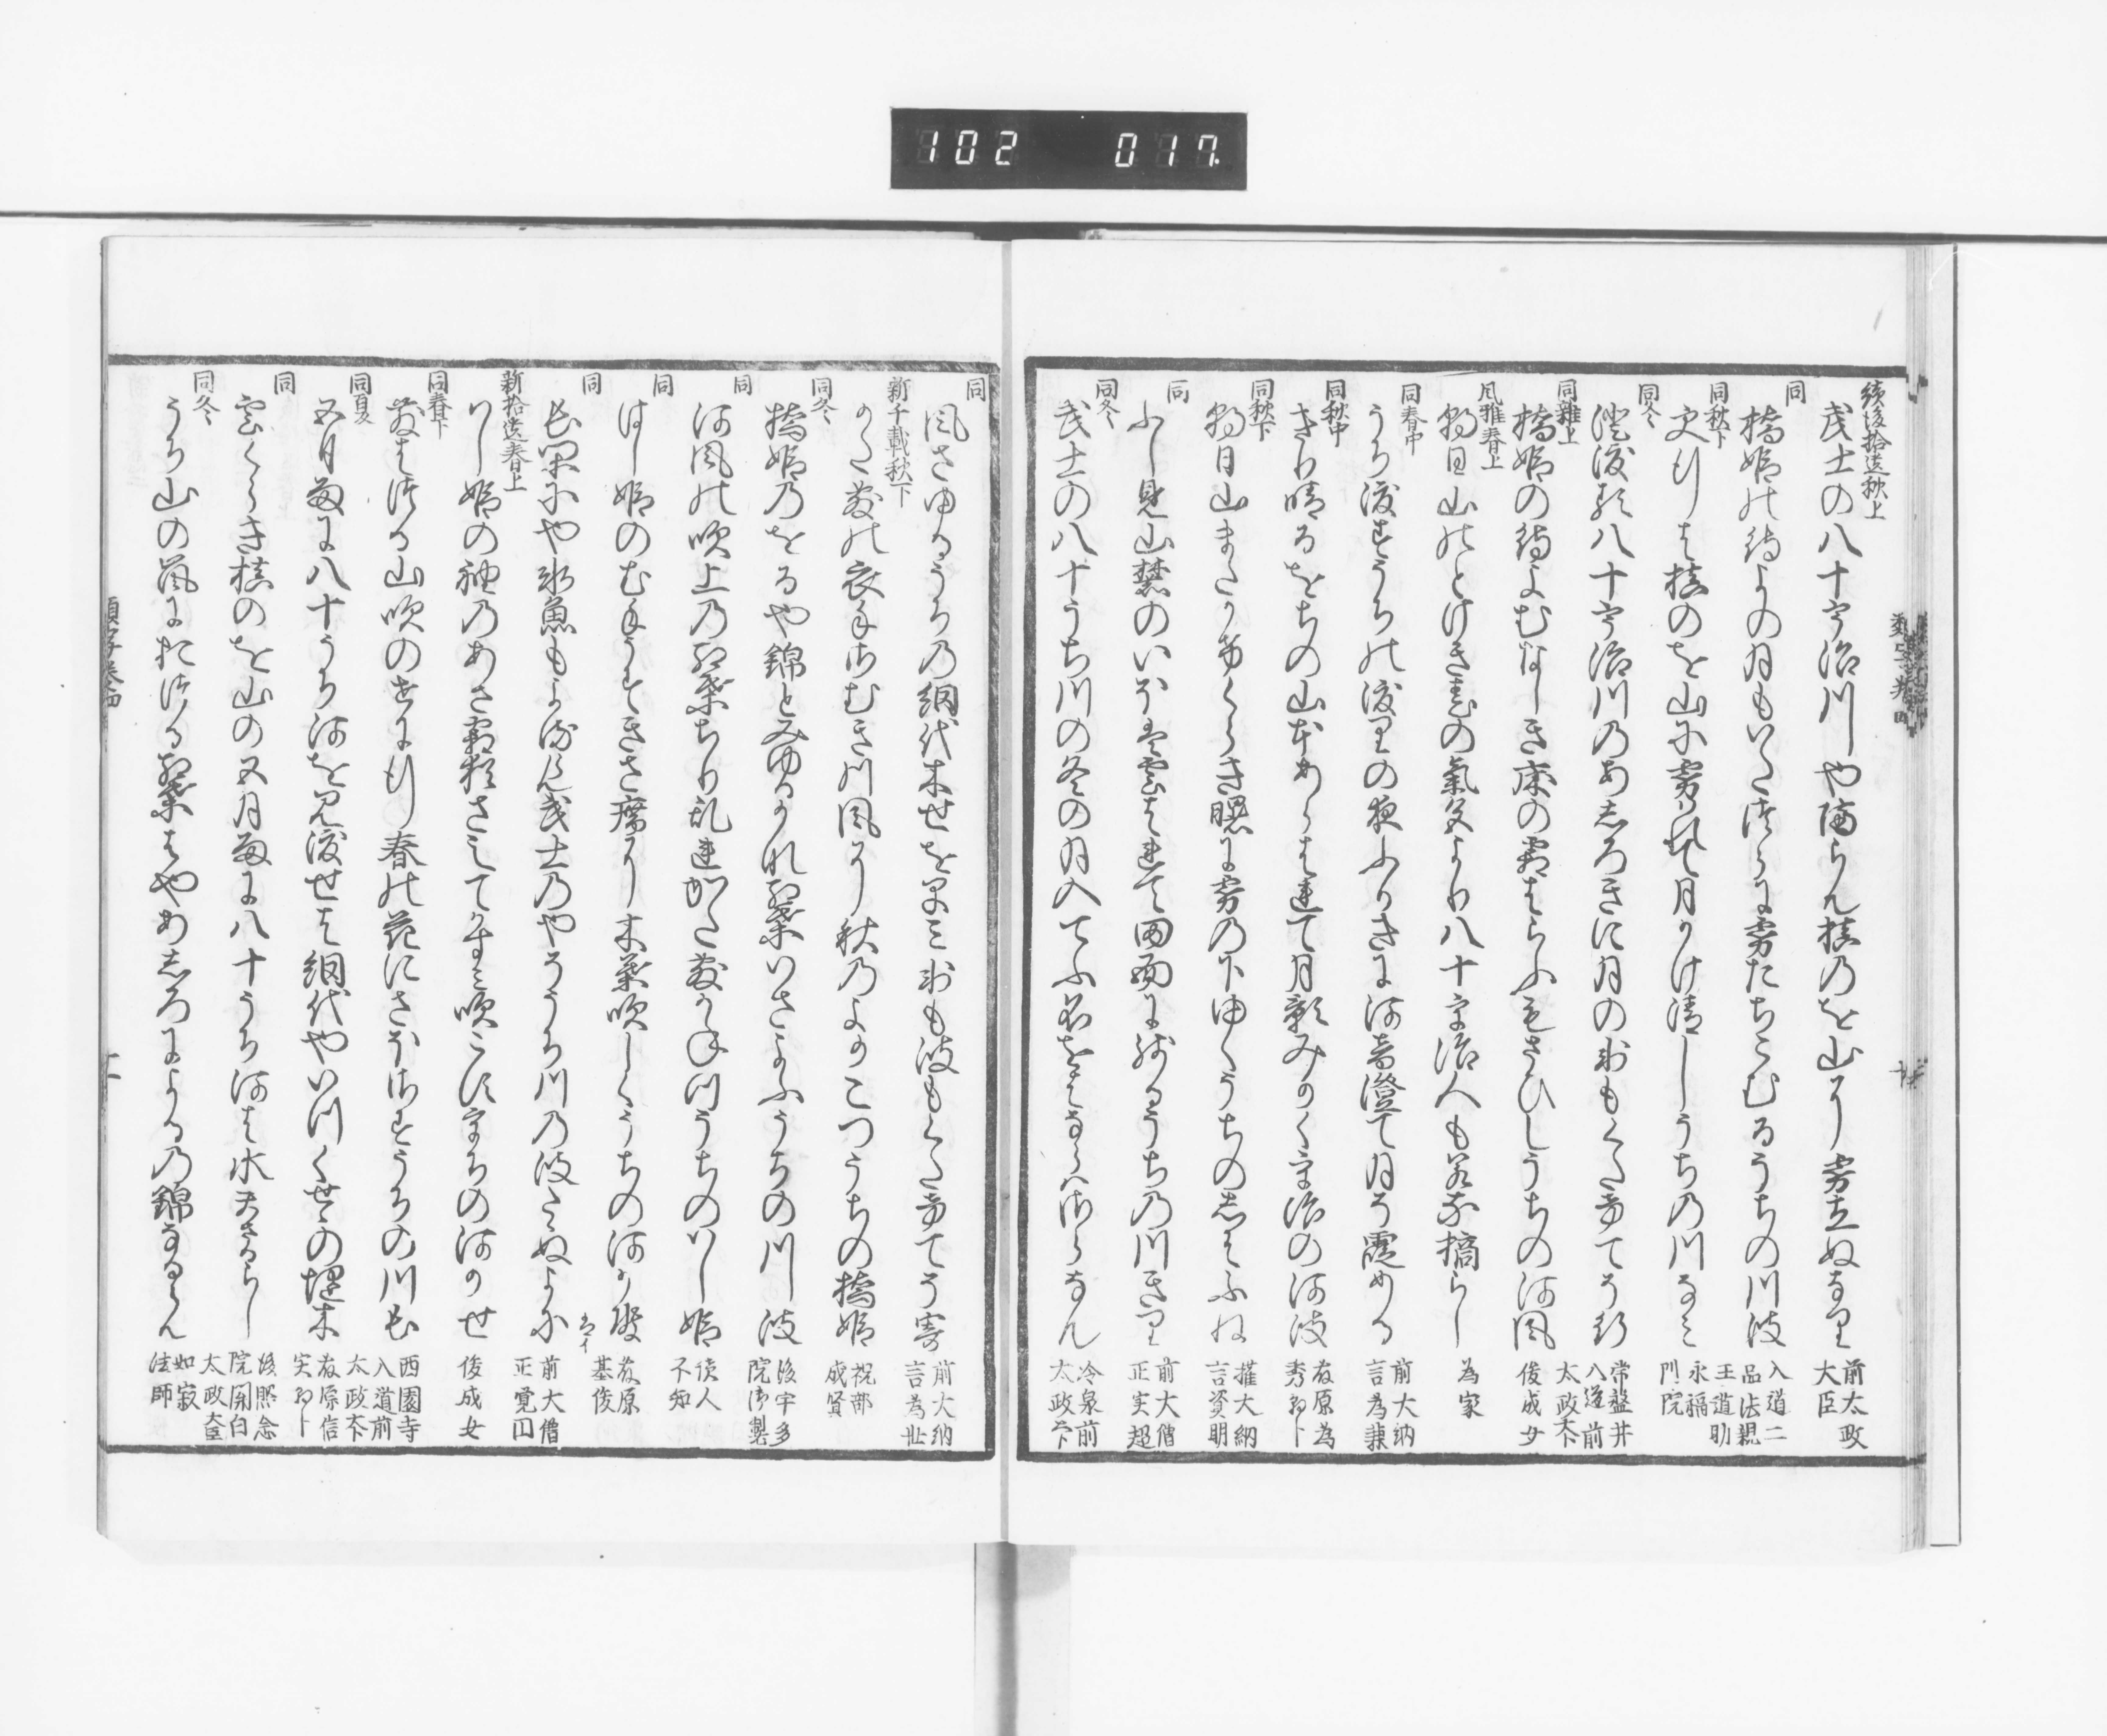 102 017.
續後拾遺秋上
武士の八十宇治川や隔らん槙のを山に霧立ぬなり
前太政大臣
同
橋姫の待よの月もいたつらに霧たちこむるうちの川波
入道二品法親王道助
同秋下
更行は槙のを山に霧晴て月かけ清しうちの川なみ
永福門院
同冬
澄渡る八十宇治川のあしろきに月の氷もくたけてそ行
常盤井入道前太政大臣
同雑上
橋姫の待よむなしき床の霜はらふもさひしうちの河風
俊成女
風雅春上
朝日山のとけき春の氣色より八十宇治人も若な摘らし
為家
同春中
うち渡すうちの渡りの夜ふかきに河音澄て月そ霞める
前大納言為兼
同秋中
きり晴るをちの山本あらはれて月影みかく宇治の河波
藤原為秀朝臣
同秋下
朝日山またかけくらき曙に霧の下ゆくうちのしはふね
権大納言資明
同
ふしみ山麓のいほは雲はれて田面に残るうちの川きり
前大僧正実超
同冬
武士の八十うち川の冬の月入てふ名をはならはさらなん
冷泉前太政大臣
同
風さゆるうちの網代木せをはやみ氷も波もくたけてそ寄
前大納言為世
新千載秋下
かた敷の衣手さむき川風に秋のよのこつうちの橋姫
祝部成賢
同冬
橋姫のをるや錦とみゆるかな紅葉いさよふうちの川波
後宇多院御製
同
河風の吹上の紅葉ちり乱れかた敷かねつうちのはし姫
読人不知
同
はし姫のむすうすきさ席に木葉吹しくうちの河かせ
藤原基俊
同
長閑にや氷魚もよるらん武士のやそうち川の波たゝぬよに
前大僧正覚円
新拾遺春上
はし姫の袖のあさ霜猶さえてかすみ吹こす宇ちの河かせ
俊成女
同春下
散はつる山吹のせに行春の花にさほさすうちの川長
西園寺入道前太政大臣
同夏
五月雨に八十うち河を見渡せは網代やいつくせゝの埋木
藤原信実朝臣
同
雲くらき槙のを山の五月雨に八十うち河は水まさるらし
後照念院関白太政大臣
同冬
うち山の嵐におつる紅葉はやあしろによるの錦なるらん
如寂法師
類字巻四